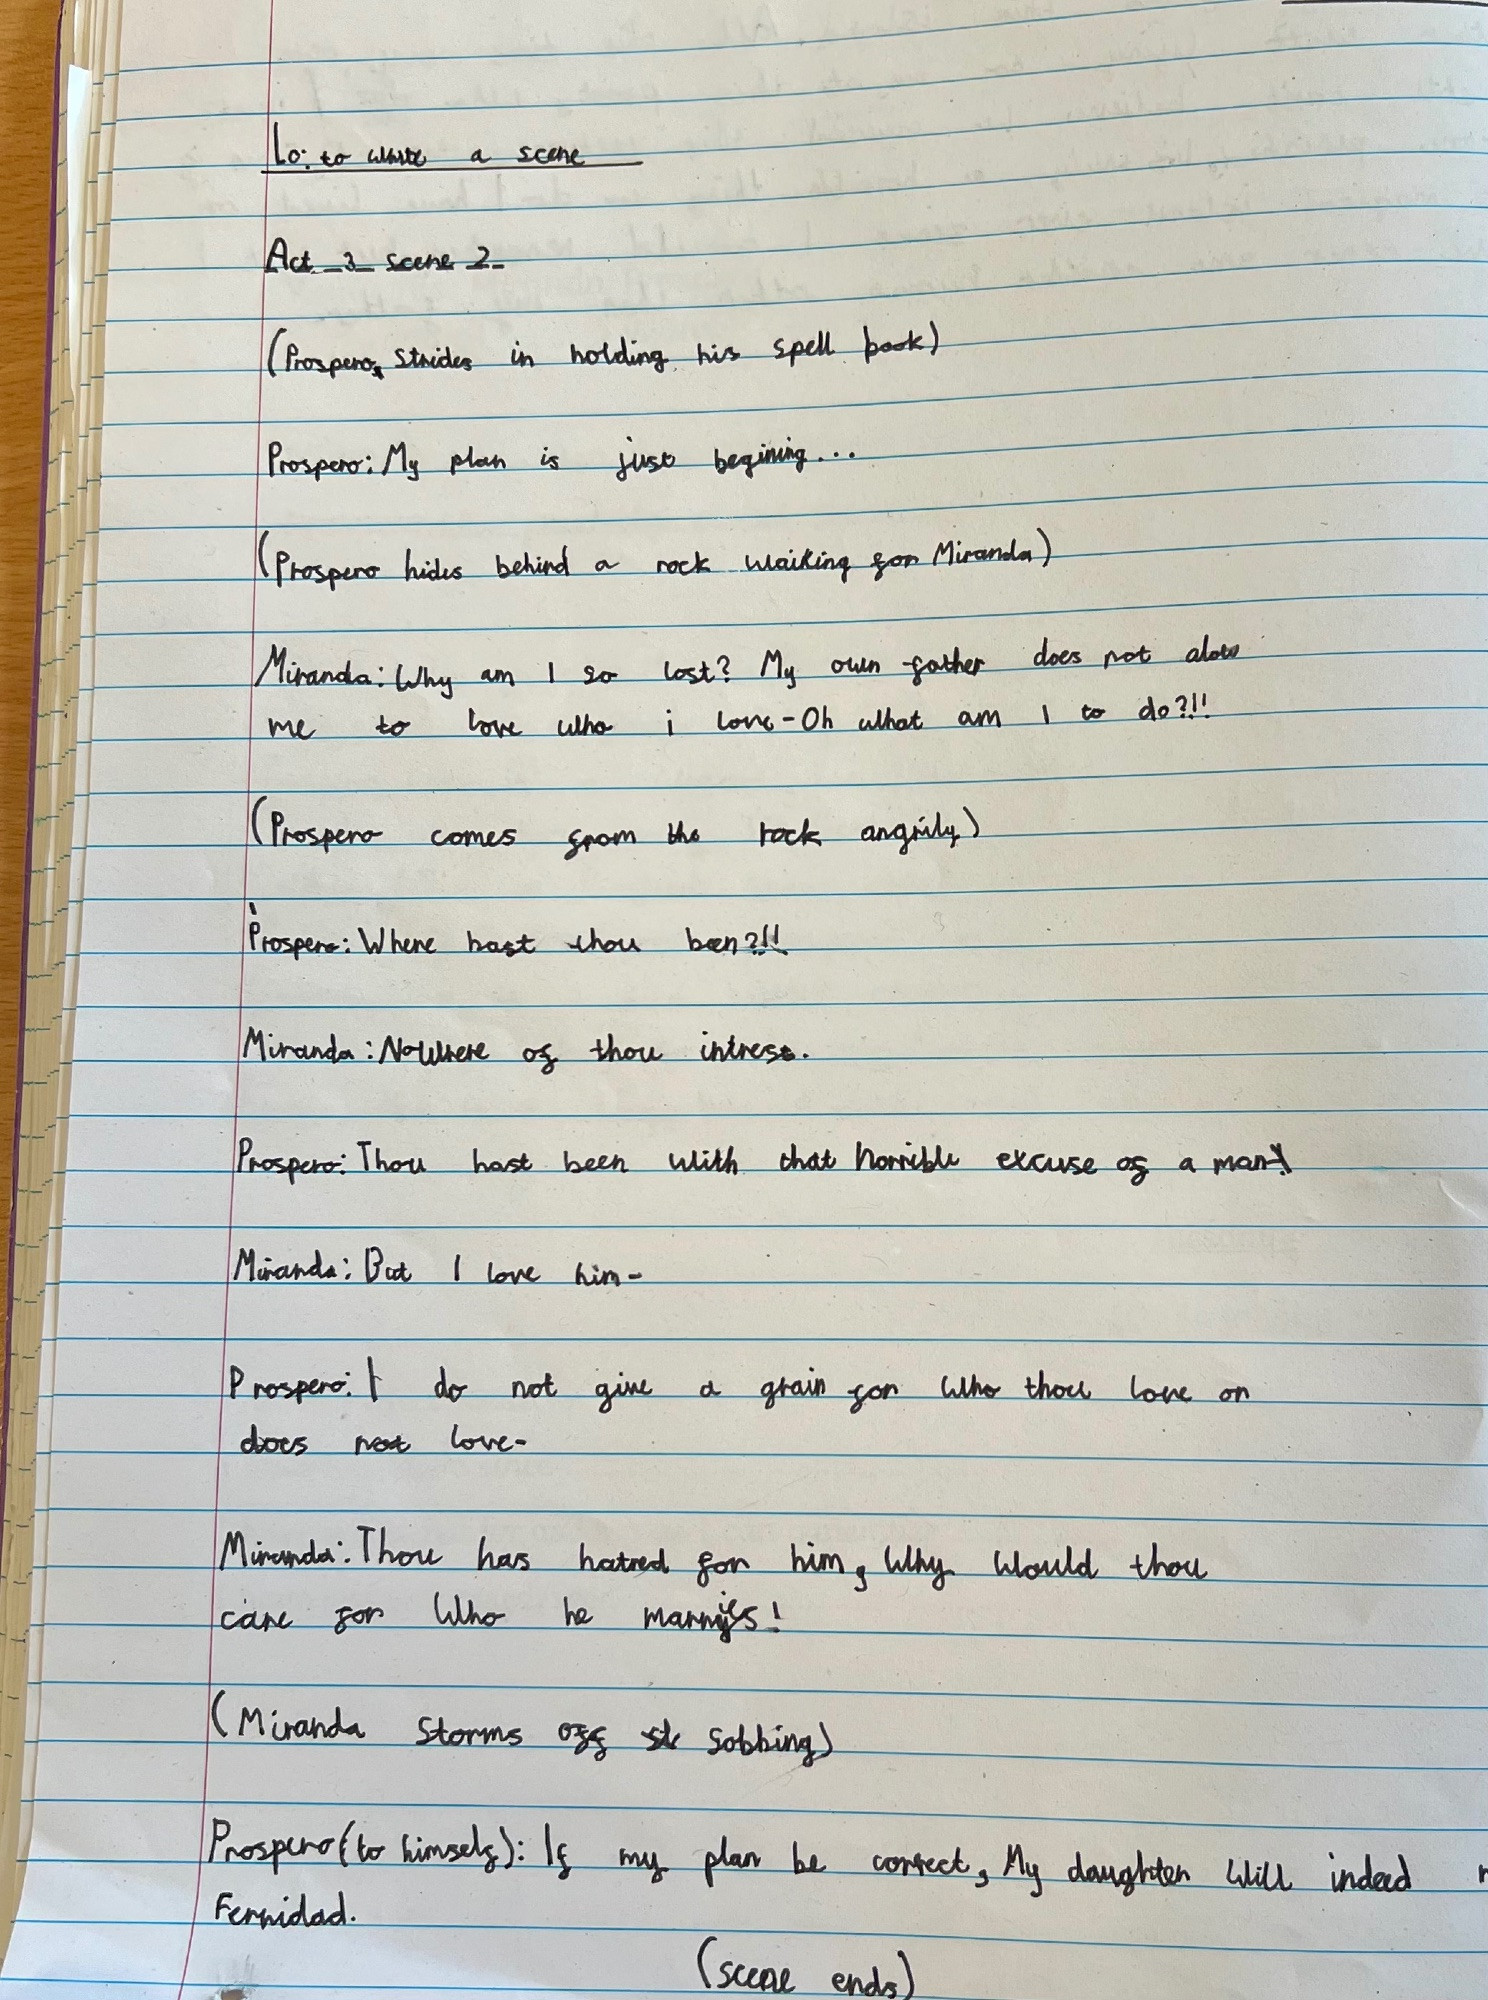 Lo: to white a scene
Act 3 scene 2
(Prospero, strides in holding his spell book)
Prospero: My plan is just begining...
(Prospero hides behind a rock waiking for Miranda)
Miranda: Why am I so lost? My own father does not alow
me to love who i love-Oh what am I to do?!!
(Prospero comes from the rock angrily)
Prospero: Where hast thou been?!!
Miranda: Nowhere of thou intrest.
Prospero: Thou hast been with that horrible excuse of a man!
Miranda: But I love him-
Prospero: I do not give a grain for who thou love or
does not love-
Miranda: Thou has hatred for him, Why would thou
care for who he marries!
(Miranda storms off sobbing)
Prospero (to himself): If my plan be correct, My daughter will indeed
Fernidad.
(scene ends)